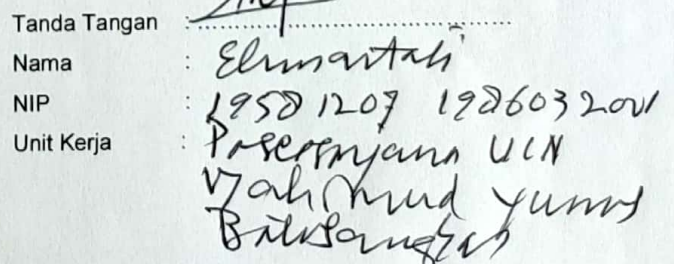 Tanda Tangan :
Nama : Elimartati
NIP : 19581207 198603 2001
Unit Kerja : Pascasarjana UIN
Mahmud Yunus
Batusangkar